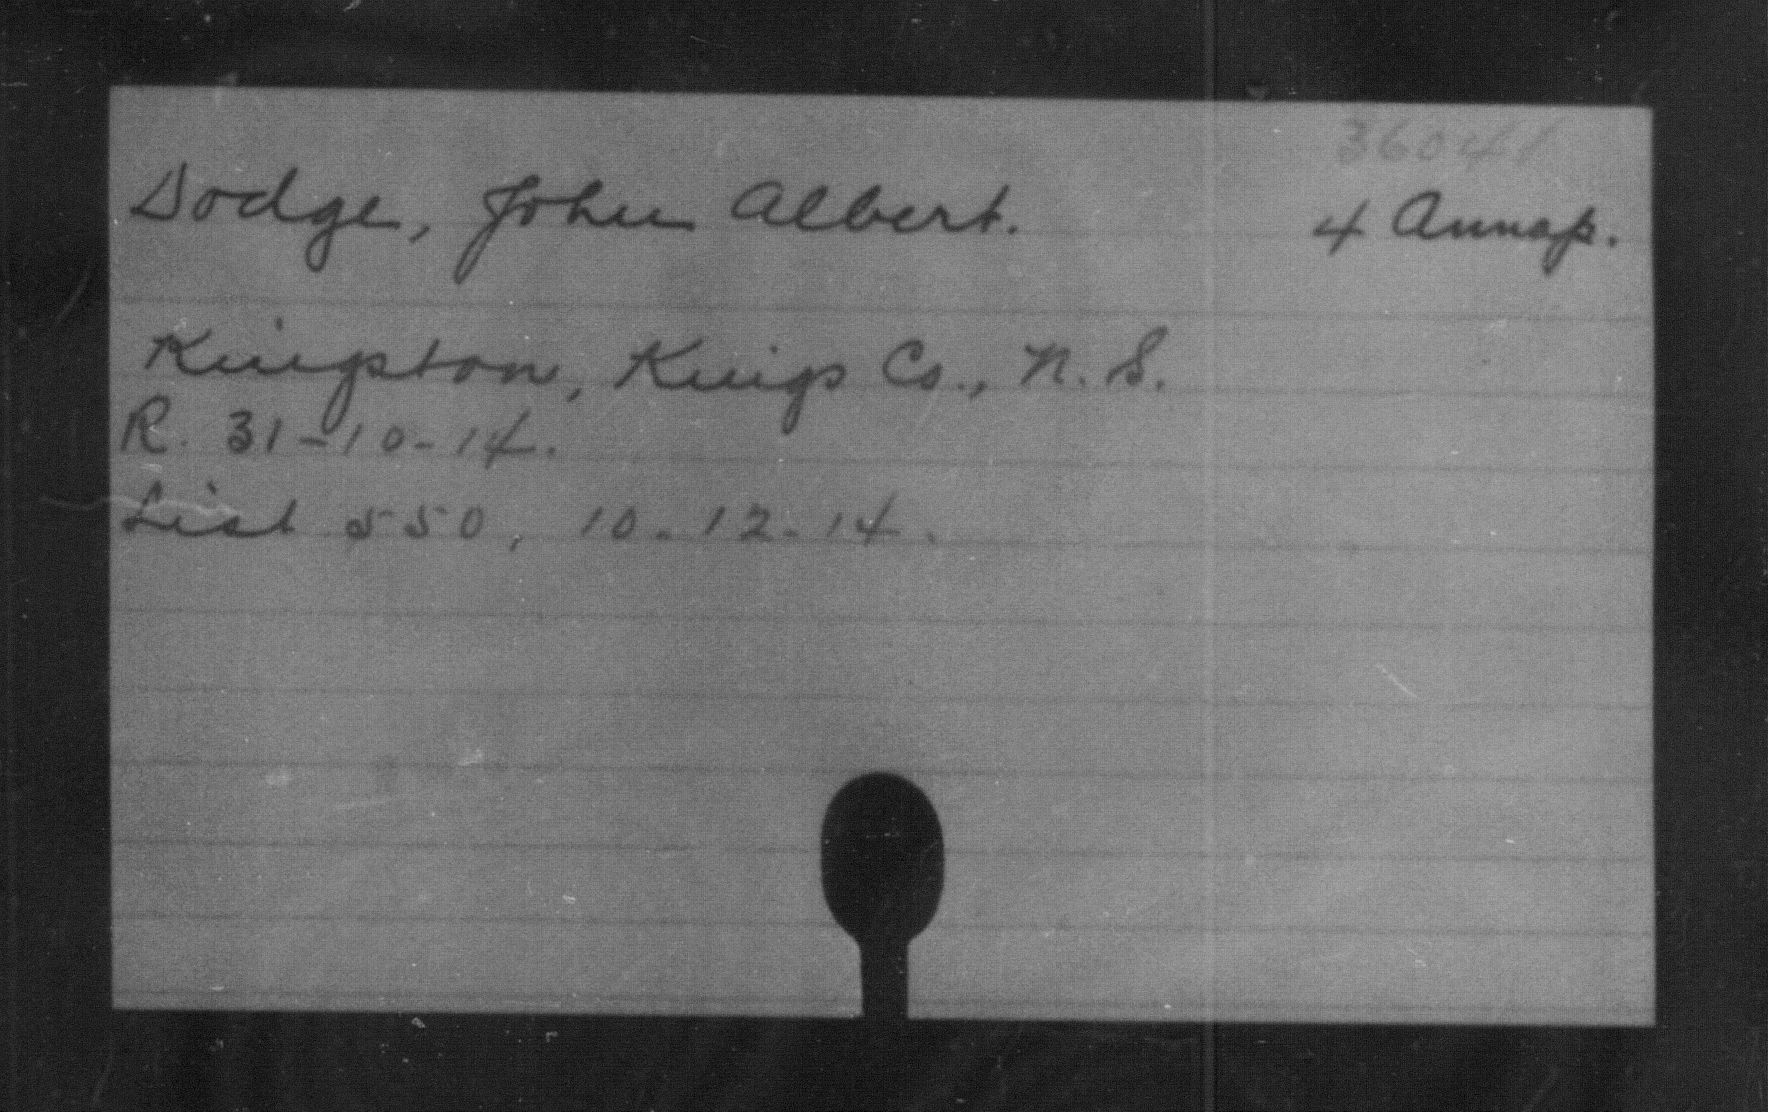 36041
Dodge, John Albert. 4 Annap.
Kingston, Kings Co., N. S.
R. 31-10-14.
List 550, 10-12-14.